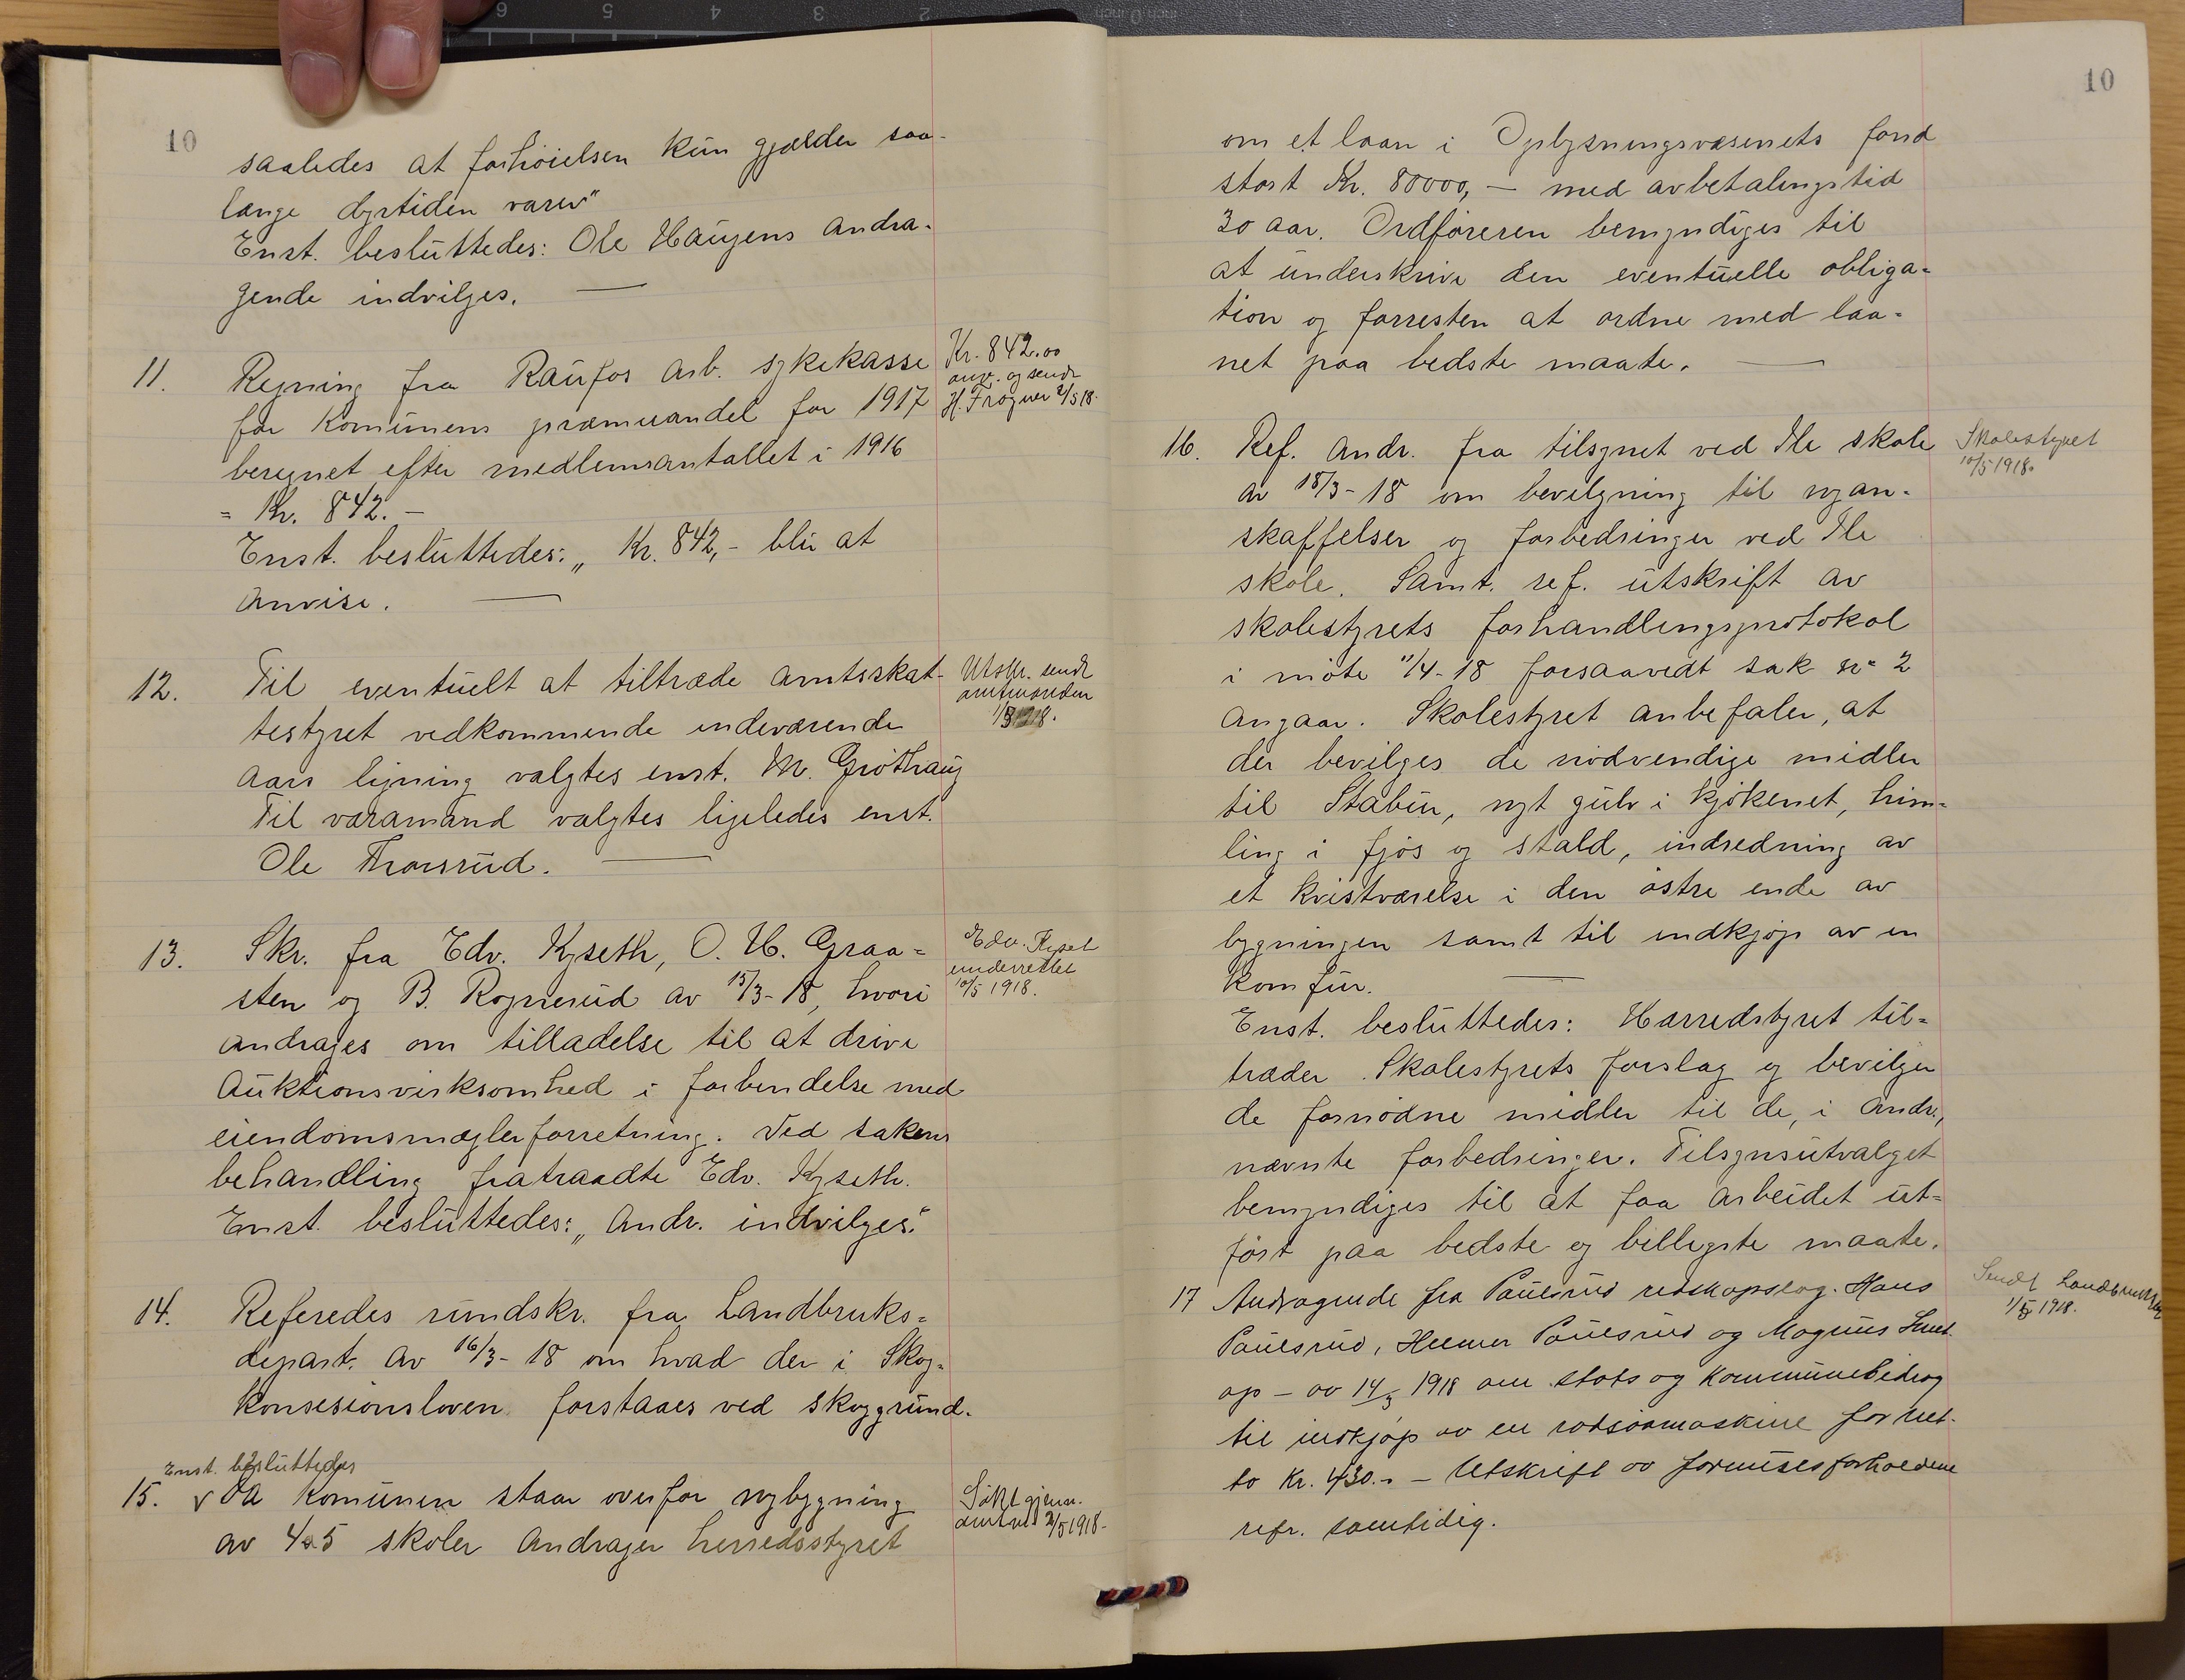 10
saaledes at forhöielsen kun gjælder saa-
længe dyrtiden varer"
Enst. besluttedes: Ole Haugens andra-
gende indvilges. —
11. Regning fra Raufos arb. sykekasse
for Komunens præmieandel for 1917
beregnet efter medlemsantallet i 1916
= Kr. 842. -
Enst. besluttedes: „ Kr. 842,- blir at
anvise. —
Kr. 842.00
anv. og sendt
H. Frøgner 2/5 18.
12. Til eventuelt at tiltræde amtsskat-
testyret vedkommende indeværende
aars ligning valgtes enst. M. Gröthaug
Til varamand valgtes ligeledes enst.
Ole Thorsrud. —
Utskr. sendt
amtmanden
1/5 1918.
13. Skr. fra Edv. Kyseth, O. H. Graa=
sten og B. Rognerud av 15/3-18, hvori
andrages om tilladelse til at drive
Auktionsvirksomhed i forbindelse med
eiendomsmæglerforretning. Ved sakens
behandling fratraadte Edv. Kyseth.
Enst. besluttedes: „ Andr. indvilges."
Edv. Kyset
underrettet
10/5 1918.
14. Referedes rundskr. fra Landbruks=
depart. av 16/3-18 om hvad der i Skog=
konsesionsloven forstaaes ved skoggrund.
Enst. besluttedes
15. v Da Komunen staar overfor nybygning
av 4 a 5 skoler andrager herredsstyret
Søkt gjenn.
amtmd 2/5 1918.
10
om et laan i Oplysningsvæsenets fond
stort Kr. 80000,- med avbetalingstid
30 aar. Ordföreren bemyndiges til
at underskrive den eventuelle obliga=
tion og forresten at ordne med laa=
net paa bedste maate. —
16. Ref. Andr. fra tilsynet ved Ile skole
av 18/3-18 om bevilgning til nyan-
skaffelser og forbedringer ved Ile
skole. Samt. ref. utskrift av
skolestyrets forhandlingsprotokol
i möte 11/4-18 forsaavidt sak nr 2
angaar. Skolestyret anbefaler, at
der bevilges de nödvendige midler
til Stabur, nyt gulv i kjökenet, him=
ling i fjös og stald, indredning av
et kvistværelse i den östre ende av
bygningen samt til indkjöp av en
Komfur. —
Enst. besluttedes: Herredstyret til=
træder Skolestyrets forslag og bevilger
de fornödne midler til de, i andr.,
nævnte forbedringer. Tilsynsutvalget
bemyndiges til at faa arbeidet ut=
fört paa bedste og billigste maate.
Skolestyret
10/5 1918.
17 Andragende fra Paulsrud redskapslag. Hans
Paulsrud, Helmer Paulsrud og Magnus
op - av 14/3 1918 om stats og kommunebidrag
til indkjøp av en radsaamaskine for net-
to Kr. 430.- - Utskrift av formuesforholdene
refr. samtidig.
Sendt
1/5 1918.